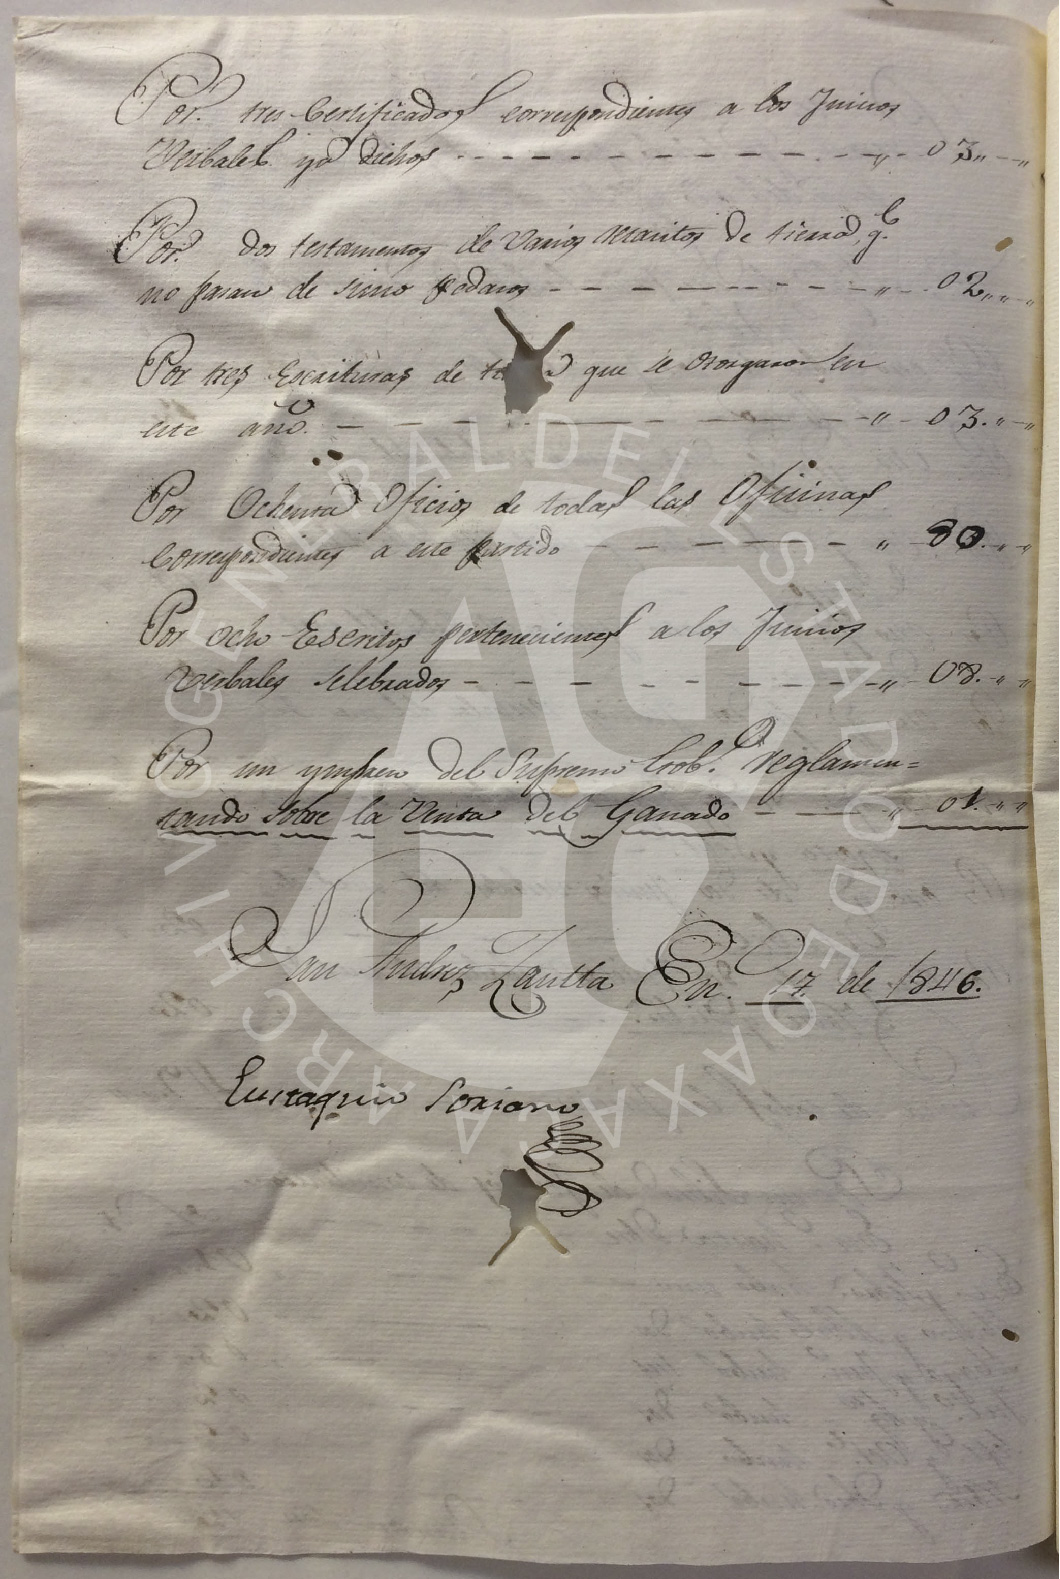 Por. tres Certificados correspondientes a los Juicios
Verbales ya dichos - - - - - - - - - - - „ - 03„ - „
Por. dos testamentos de varios retacitos de tierra, q.e
no pasan de sinco pedasos - - - - - - - „ - 02„ „ „
Por tres Escrituras de que se otorgaron en
este año. - - - - - - - - - - „ - 03. „ - „
Por Ochenta Oficios de todas las Oficinas
Correspondientes a este partido - - - - „ - 80. „ - „
Por ocho Escritos pertenecientes a los Juicios
Verbales selebrados - - - - - - - - - „ - 08. - „ - „
Por un ympreso del Supremo Gob.o reglamen=
tando sobre la Venta del Ganado - - - „ - 01. „ „
San Andrez Zautla En.o 17. de 1846.
Eustaquio Soriano
ARCHIVO GENERAL DEL ESTADO DE OAXACA